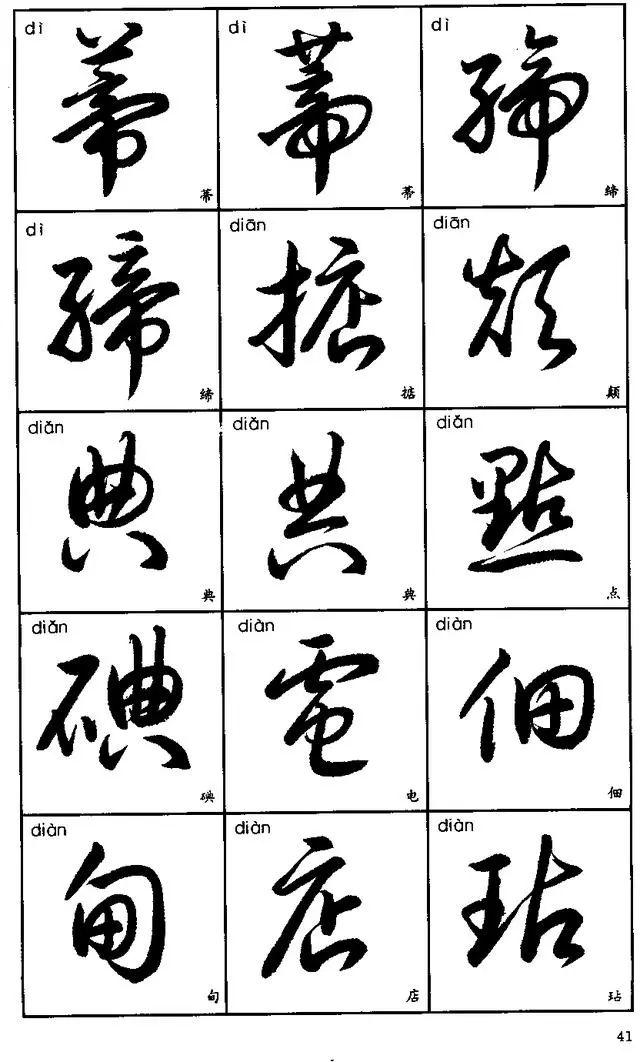 dì dì dì
蒂 蒂 缔
蒂 蒂 缔
dì diān diān
缔 掂 颠
缔 掂 颠
diǎn diǎn diǎn
典 典 點
典 典 点
diǎn diàn diàn
碘 電 佃
碘 电 佃
diàn diàn diàn
甸 店 玷
甸 店 玷
41